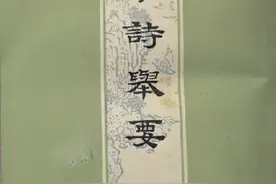 詩舉要